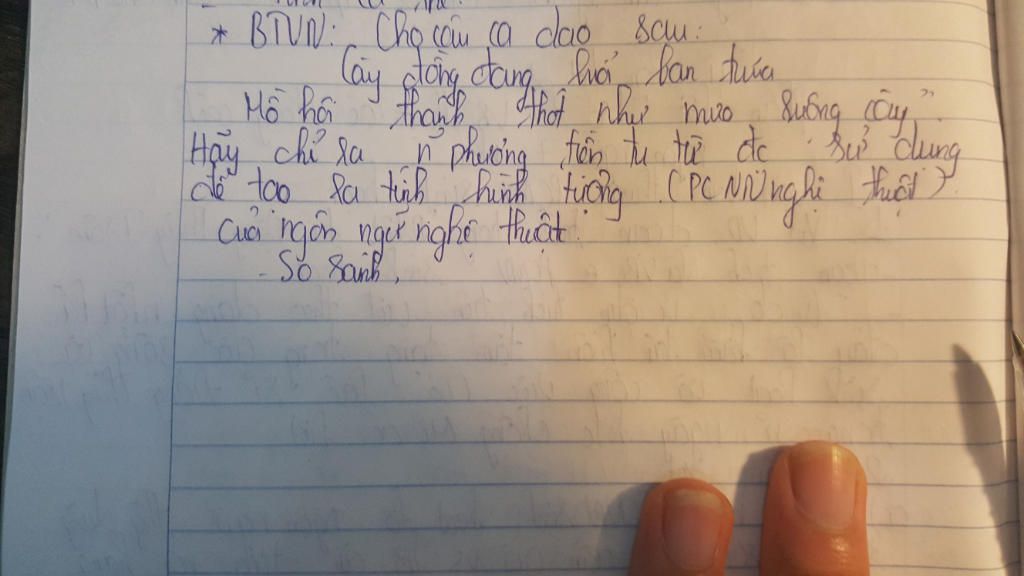 * BTVN: Cho câu ca dao sau:
Cày đồng đang buổi ban trưa
Mồ hôi thánh thót như mưa ruộng cày"
Hãy chỉ ra n~ phương tiện tu từ đc sử dụng
để tạo ra tính hình tượng (PCNN nghệ thuật)
của ngôn ngữ nghệ thuật.
- So sánh,